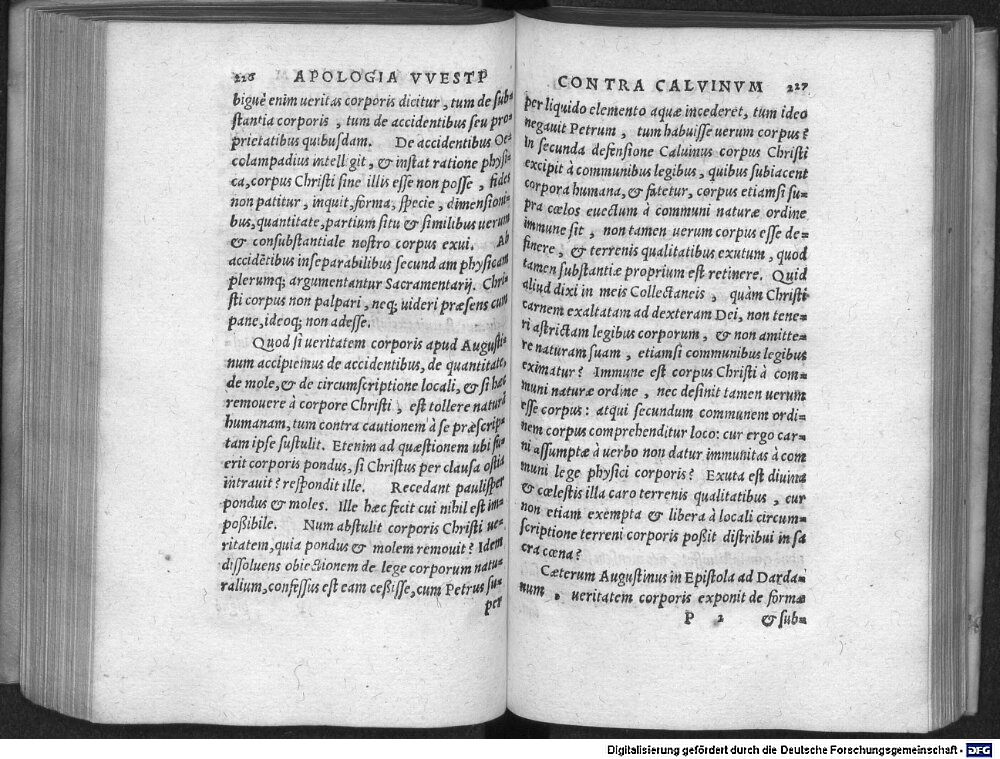 226 APOLOGIA VVESTP
biguè enim ueritas corporis dicitur, tum de sub-
stantia corporis, tum de accidentibus seu pro-
prietatibus quibusdam. De accidentibus Oe-
colampadius intelligit, & instat ratione physi-
ca, corpus Christi sine illis esse non posse, fides
non patitur, inquit, forma, specie, dimensioni-
bus, quantitate, partium situ & similibus uerum
& consubstantiale nostro corpus exui. Ab
accidẽtibus inseparabilibus secundam physicam
plerumq; argumentantur Sacramentarij. Chri-
sti corpus non palpari, neq; uideri præsens cum
pane, ideoq; non adesse.
Quod si ueritatem corporis apud Augusti-
num accipiemus de accidentibus, de quantitate,
de mole, & de circumscriptione locali, & si hæc
remouere à corpore Christi, est tollere naturã
humanam, tum contra cautionem à se præscrip-
tam ipse sustulit. Etenim ad quæstionem ubi fu-
erit corporis pondus, si Christus per clausa ostia
intrauit? respondit ille. Recedant paulisper
pondus & moles. Ille hæc fecit cui nihil est im-
poßibile. Num abstulit corporis Christi ue-
ritatem, quia pondus & molem remouit? Idem
dissoluens obiectionem de lege corporum natu-
ralium, confessus est eam ceßisse, cum Petrus su-
per
CONTRA CALVINVM 227
per liquido elemento aquæ incederet, tum ideo
negauit Petrum, tum habuisse uerum corpus?
In secunda defensione Caluinus corpus Christi
excipit à communibus legibus, quibus subiacent
corpora humana, & fatetur, corpus etiamsi su-
pra cœlos euectum à communi naturæ ordine
immune sit, non tamen uerum corpus esse de-
sinere, & terrenis qualitatibus exutum, quod
tamen substantiæ proprium est retinere. Quid
aliud dixi in meis Collectaneis, quàm Christi
carnem exaltatam ad dexteram Dei, non tene-
ri astrictam legibus corporum, & non amitte-
re naturam suam, etiamsi communibus legibus
eximatur? Immune est corpus Christi à com-
muni naturæ ordine, nec desinit tamen uerum
esse corpus: atqui secundum communem ordi-
nem corpus comprehenditur loco: cur ergo car-
ni assumptæ à uerbo non datur immunitas à com
muni lege physici corporis? Exuta est diuina
& cœlestis illa caro terrenis qualitatibus, cur
non etiam exempta & libera à locali circum-
scriptione terreni corporis poßit distribui in sa
cra cœna?
Cæterum Augustinus in Epistola ad Darda-
num, ueritatem corporis exponit de forma
P 2 & sub-
Digitalisierung gefördert durch die Deutsche Forschungsgemeinschaft - DFG